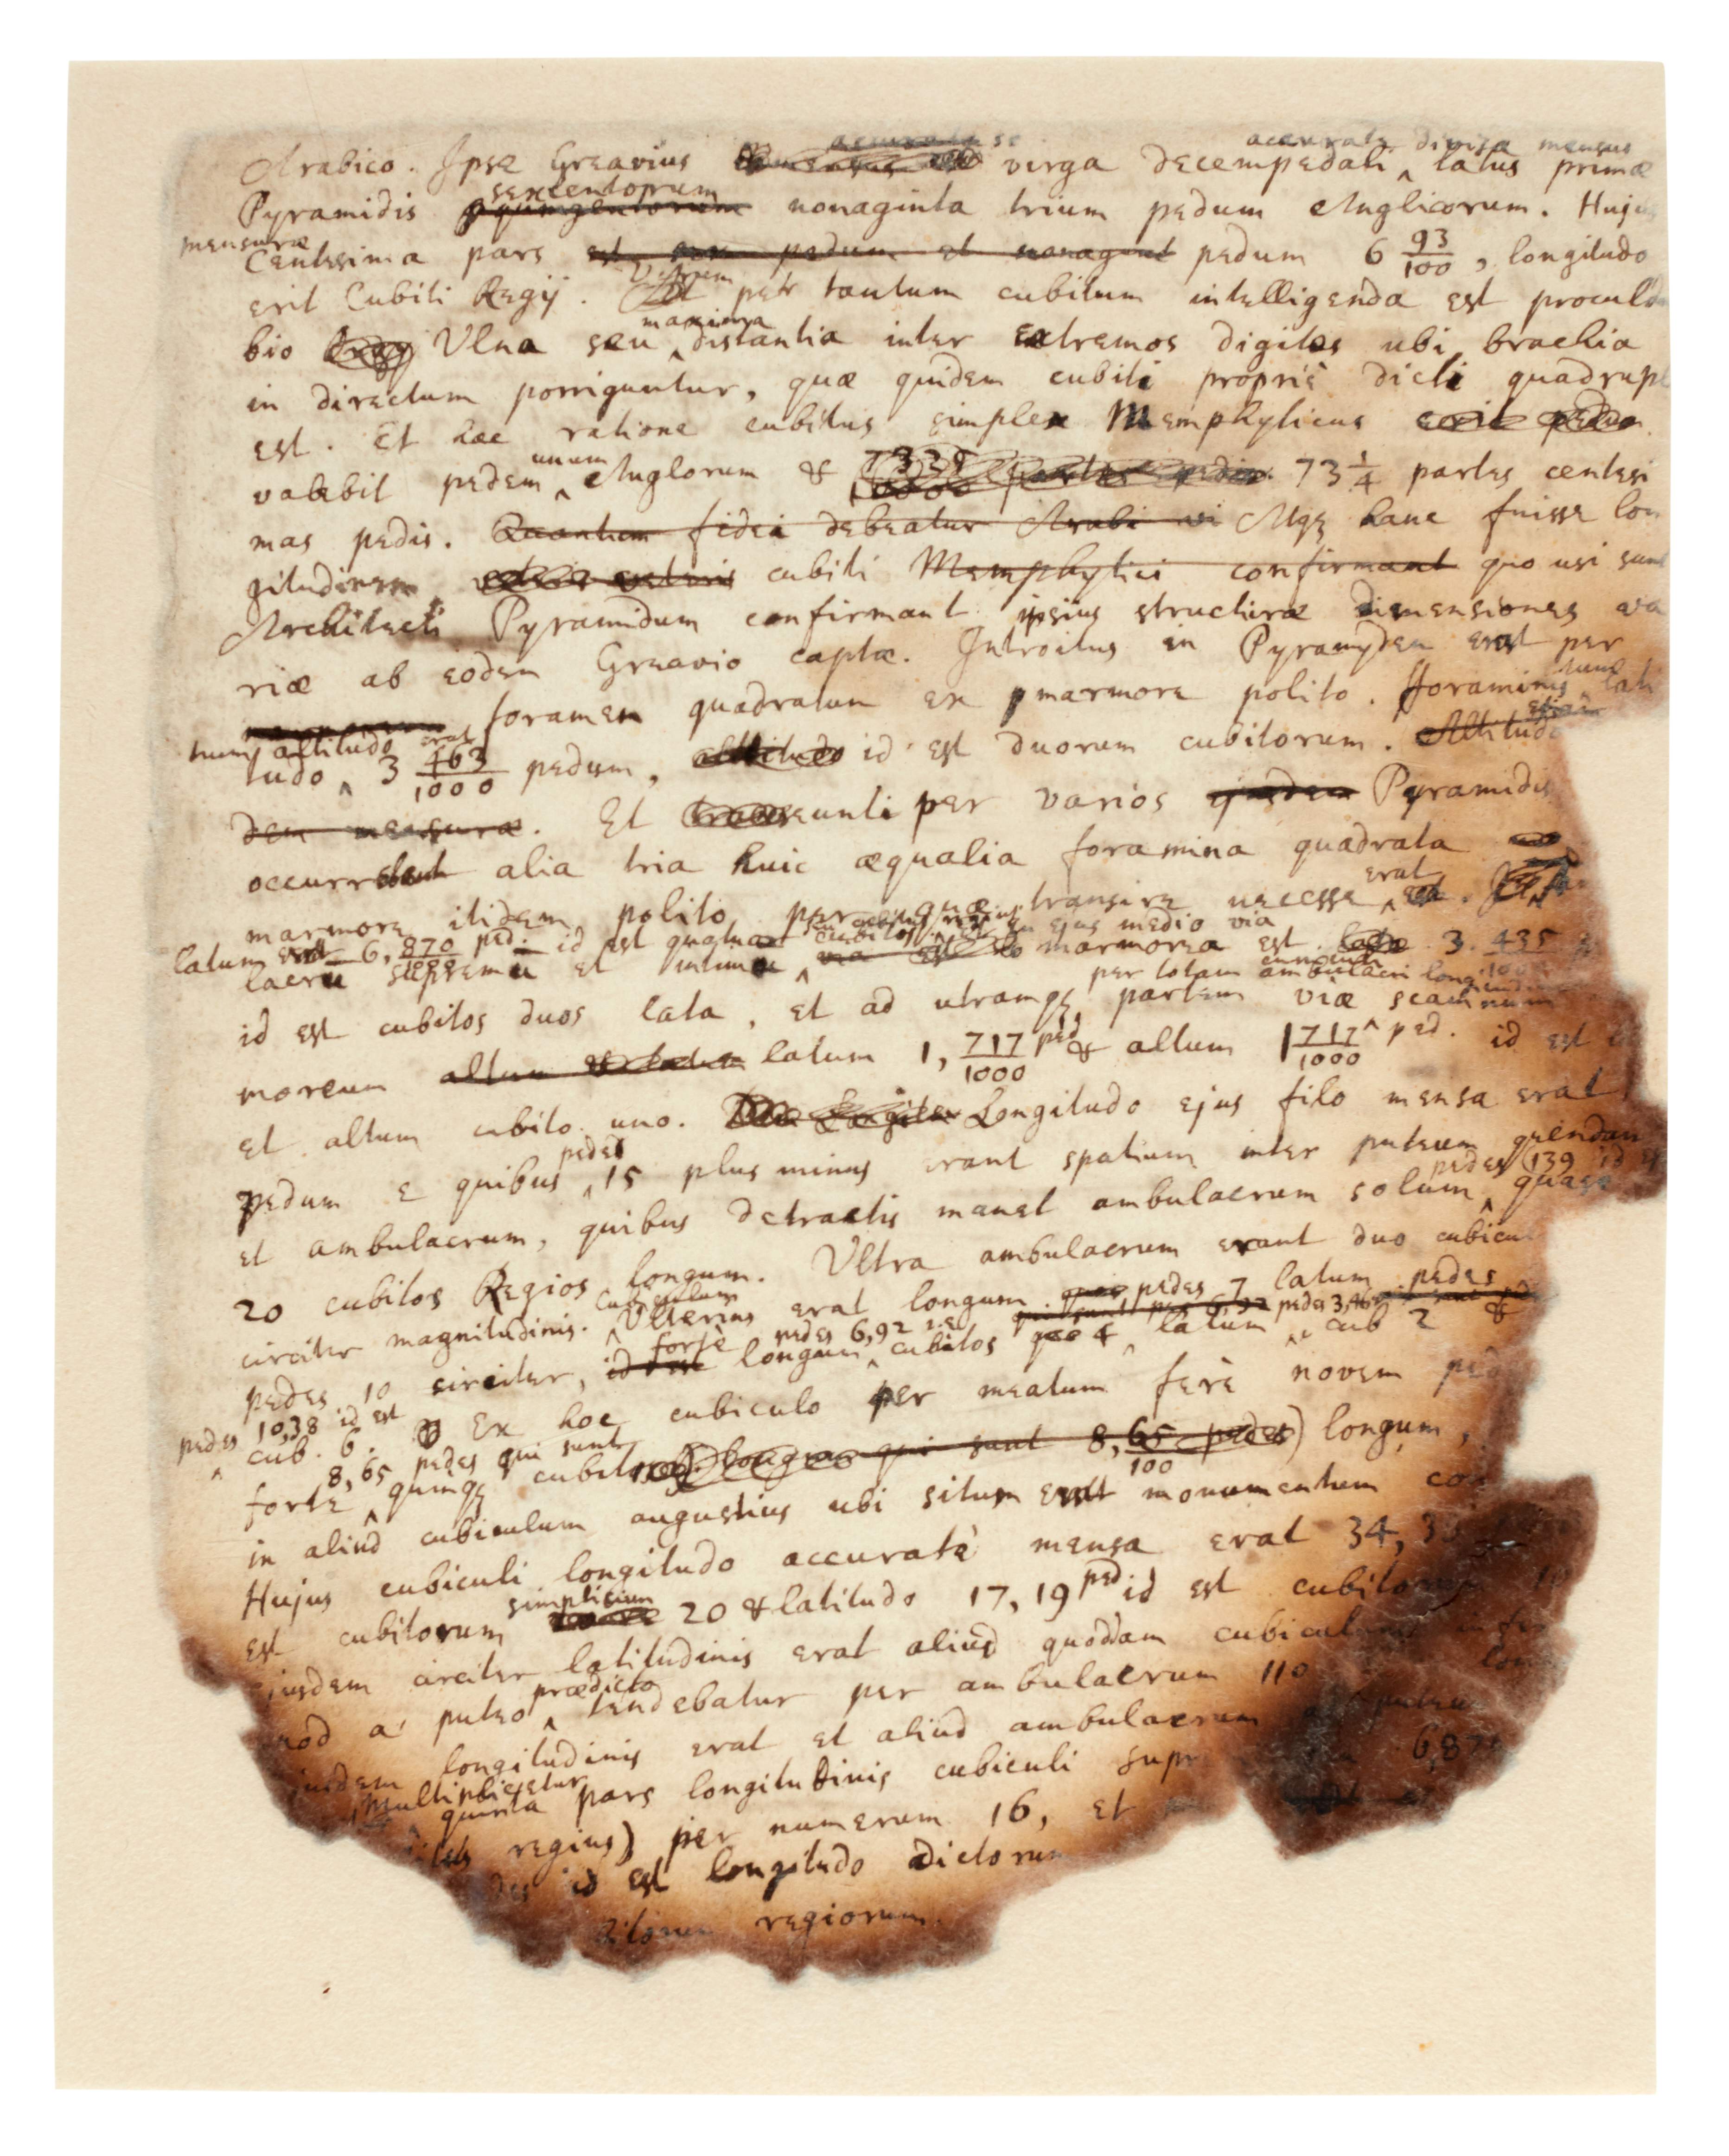 accurate se
accurate divisa mensus
Arabico. Ipse Greavius virga decempedali latus primæ
sexcentorum
Pyramidis quingentorum nonaginta trium pedum Anglicorum. Hujus
mensuræ
Centesima pars est sex pedum et nonagint pedum 6 93/100, longitudo
Virum
erit Cubiti Regij. per tantum cubitum intelligenda est proculdu
maxima
bio Ulna seu distantia inter extremos digitos ubi brachia
in directum porriguntur, quæ quidem cubiti propriè dicti quadrupl
est. Et hac ratione cubitus simplex Memphyticus erit pedum
unum
valebit pedem Anglorum & 73 1/4 partes centesi
mas pedis. Quantum fidei debeatur Arabi Atqꝫ hanc fuisse lon
gitudinem veteris cubiti Memphytici confirmant quo usi sunt
Architecti Pyramidum confirmant ipsius structuræ dimensiones va
riæ ab eodem Greavio captæ. Introitus in Pyramydem erat per
foramen quadratum ex marmore polito. Foraminis lati
tum altitudo erat
tudo 3 463/1000 pedum, altitudo id est duorum cubitorum. Altitudo
dem mensuræ. Et eunti per varios Pyramidis
occurrebant alia tria huic æqualia foramina quadrata
erat
marmore itidem polito per quæ transire necesse est.
latum 6, 870 ped. id est quatuor cubitos in ejus medio via
lacru supremu et marmorea est lata 3. 435
per totam ambulacri longitud
id est cubitos duos lata, et ad utramqꝫ partem viæ scamnum
moreum altum et latum latum 1, 717/1000 ped & altum 1 717/1000 ped. id est
et altum cubito uno. Longitudo ejus filo mensa erat
pedes
pedum e quibus 15 plus minus erant spatium inter puteum quendam
pedes 139 id est
et ambulacrum, quibus detractis manet ambulacrum solum quasi
20 cubitos Regios longum. Ultra ambulacrum erant duo cubicul
Cubiculum
circiter magnitudinis. Ulterius erat longum pedes 7 latum pedes
forte pedes 6,92 i.e. pedes 3,46
pedes 10 circiter, id est longum cubitos 4 latum cub 2 &
pedes 10,38 id est
cub. 6. Ex hoc cubiculo per meatum ferè novem ped
8,65 pedes qui sunt
forte quinqꝫ cubitos longum qui sunt 8, 65/100 pedes) longum,
in aliud cubiculum augustius ubi situm erat monumentum
Hujus cubiculi longitudo accuratè mensa erat 34,
simplicium
est cubitorum 20 & latitudo 17,19 ped id est cubitorum 10
ejusdem circiter latitudinis erat aliud quoddam cubiculum
prædicto
quod a puteo tendebatur per ambulacrum 110
ejusdem longitudinis erat et aliud ambulacrum a puteo
Multiplicetur
quinta pars longitudinis cubiculi 6,87
regius) per numerum 16, et
id est longitudo dictorum
regiorum.